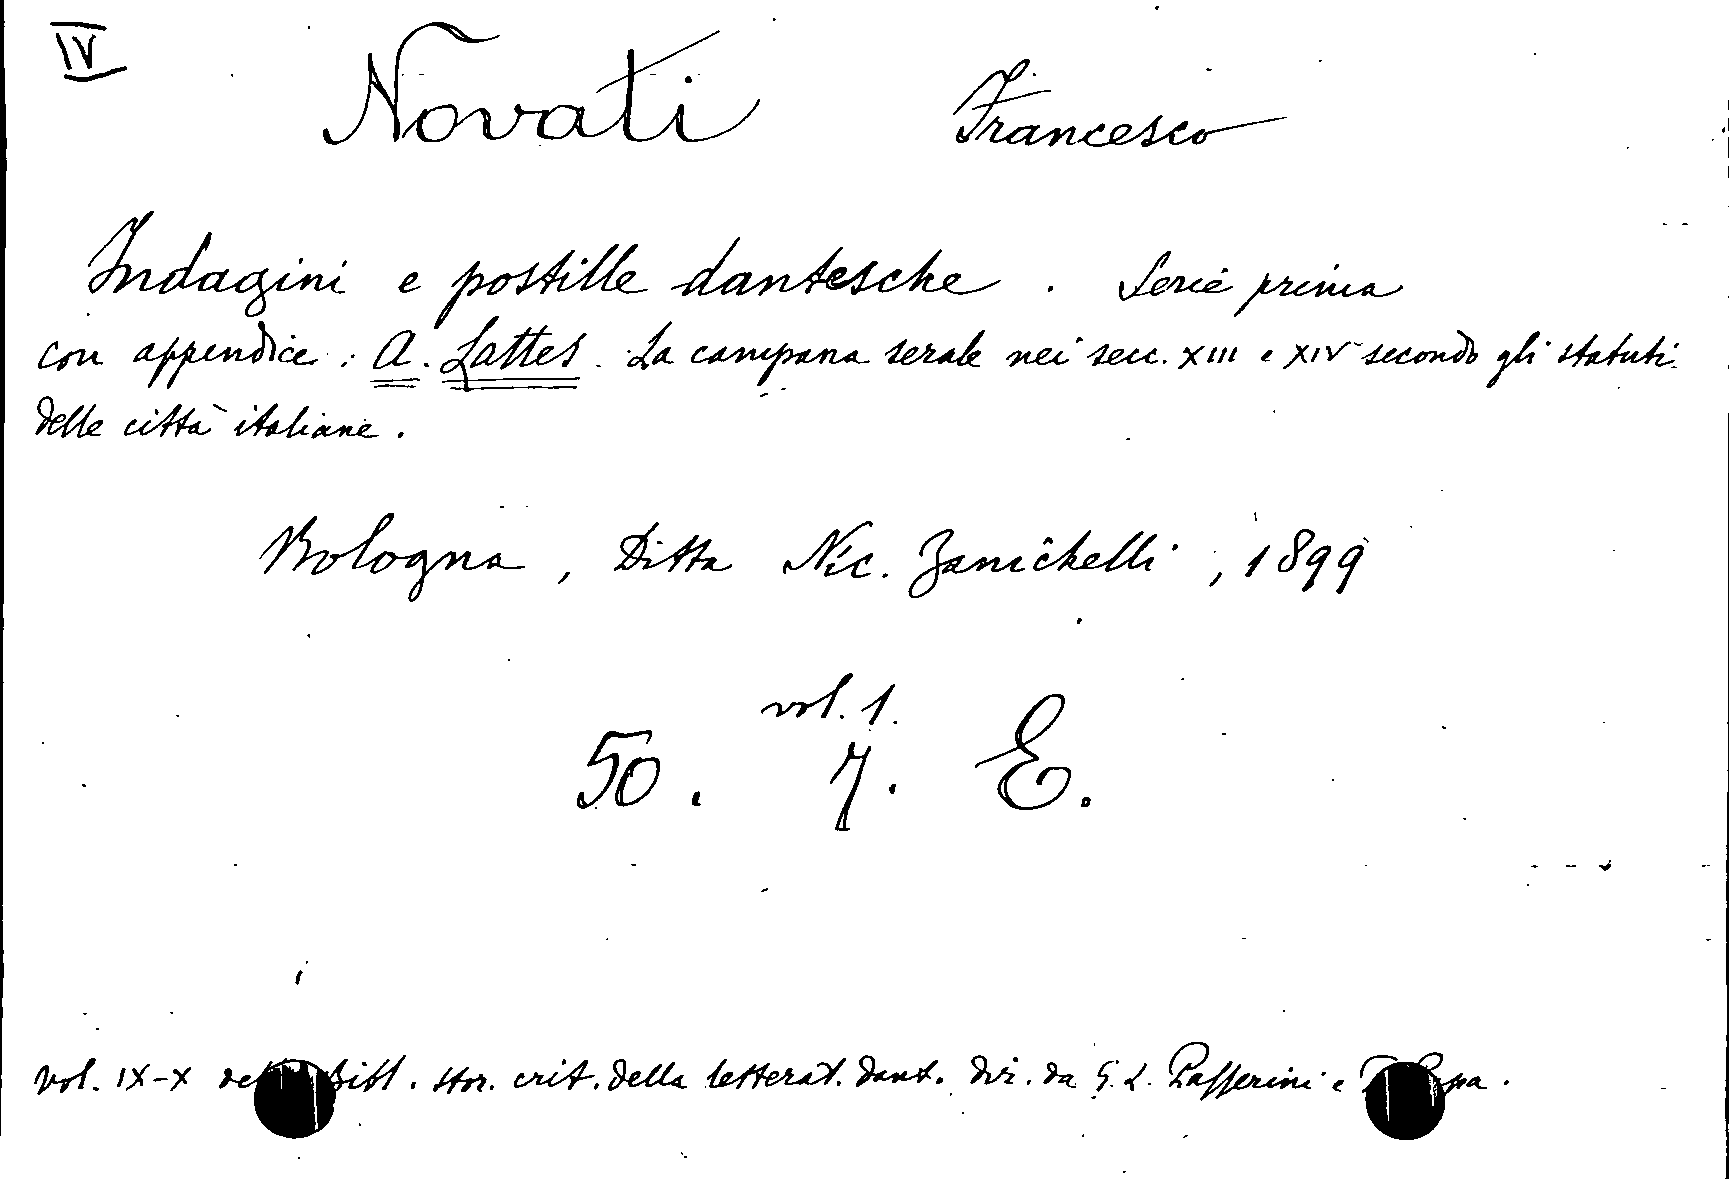 IV
Novati Francesco
Indagini e postille dantesche. Serie prima
con appendice: A. Lattes. La campana serale nei secc. XIII e XIV secondo gli statuti
delle città italiane.
Bologna, Ditta Nic. Zanichelli, 1899
vol. 1.
50. 7. E.
vol. IX-X Bibl. stor. crit. della letterat. dant. dir. da G. L. Passerini e